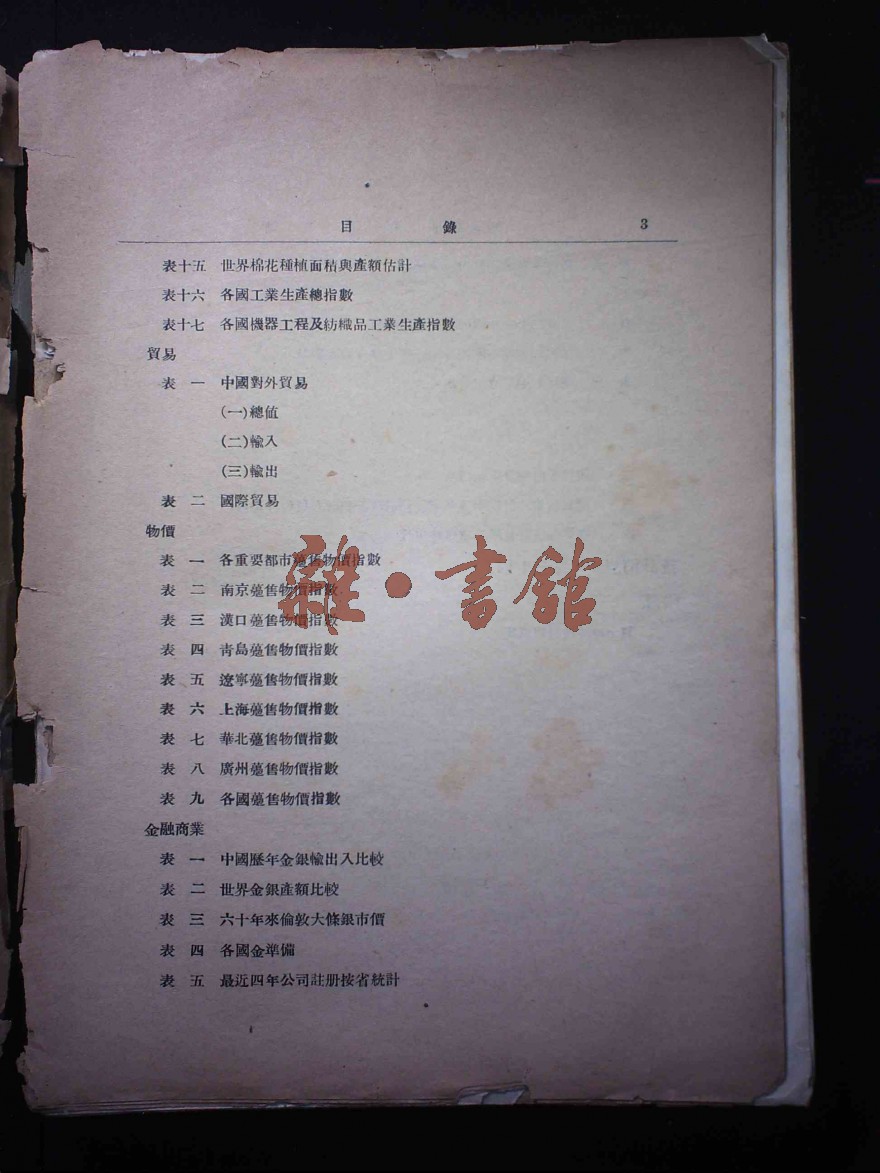 目 錄 3
表十五 世界棉花種植面積與產額估計
表十六 各國工業生產總指數
表十七 各國機器工程及紡織品工業生產指數
貿易
表 一 中國對外貿易
(一)總值
(二)輸入
(三)輸出
表 二 國際貿易
物價
表 一 各重要都市躉售物價指數
表 二 南京躉售物價指數
表 三 漢口躉售物價指數
表 四 靑島躉售物價指數
表 五 遼寧躉售物價指數
表 六 上海躉售物價指數
表 七 華北躉售物價指數
表 八 廣州躉售物價指數
表 九 各國躉售物價指數
金融商業
表 一 中國歷年金銀輸出入比較
表 二 世界金銀產額比較
表 三 六十年來倫敦大條銀市價
表 四 各國金準備
表 五 最近四年公司註册按省統計
雜·書館